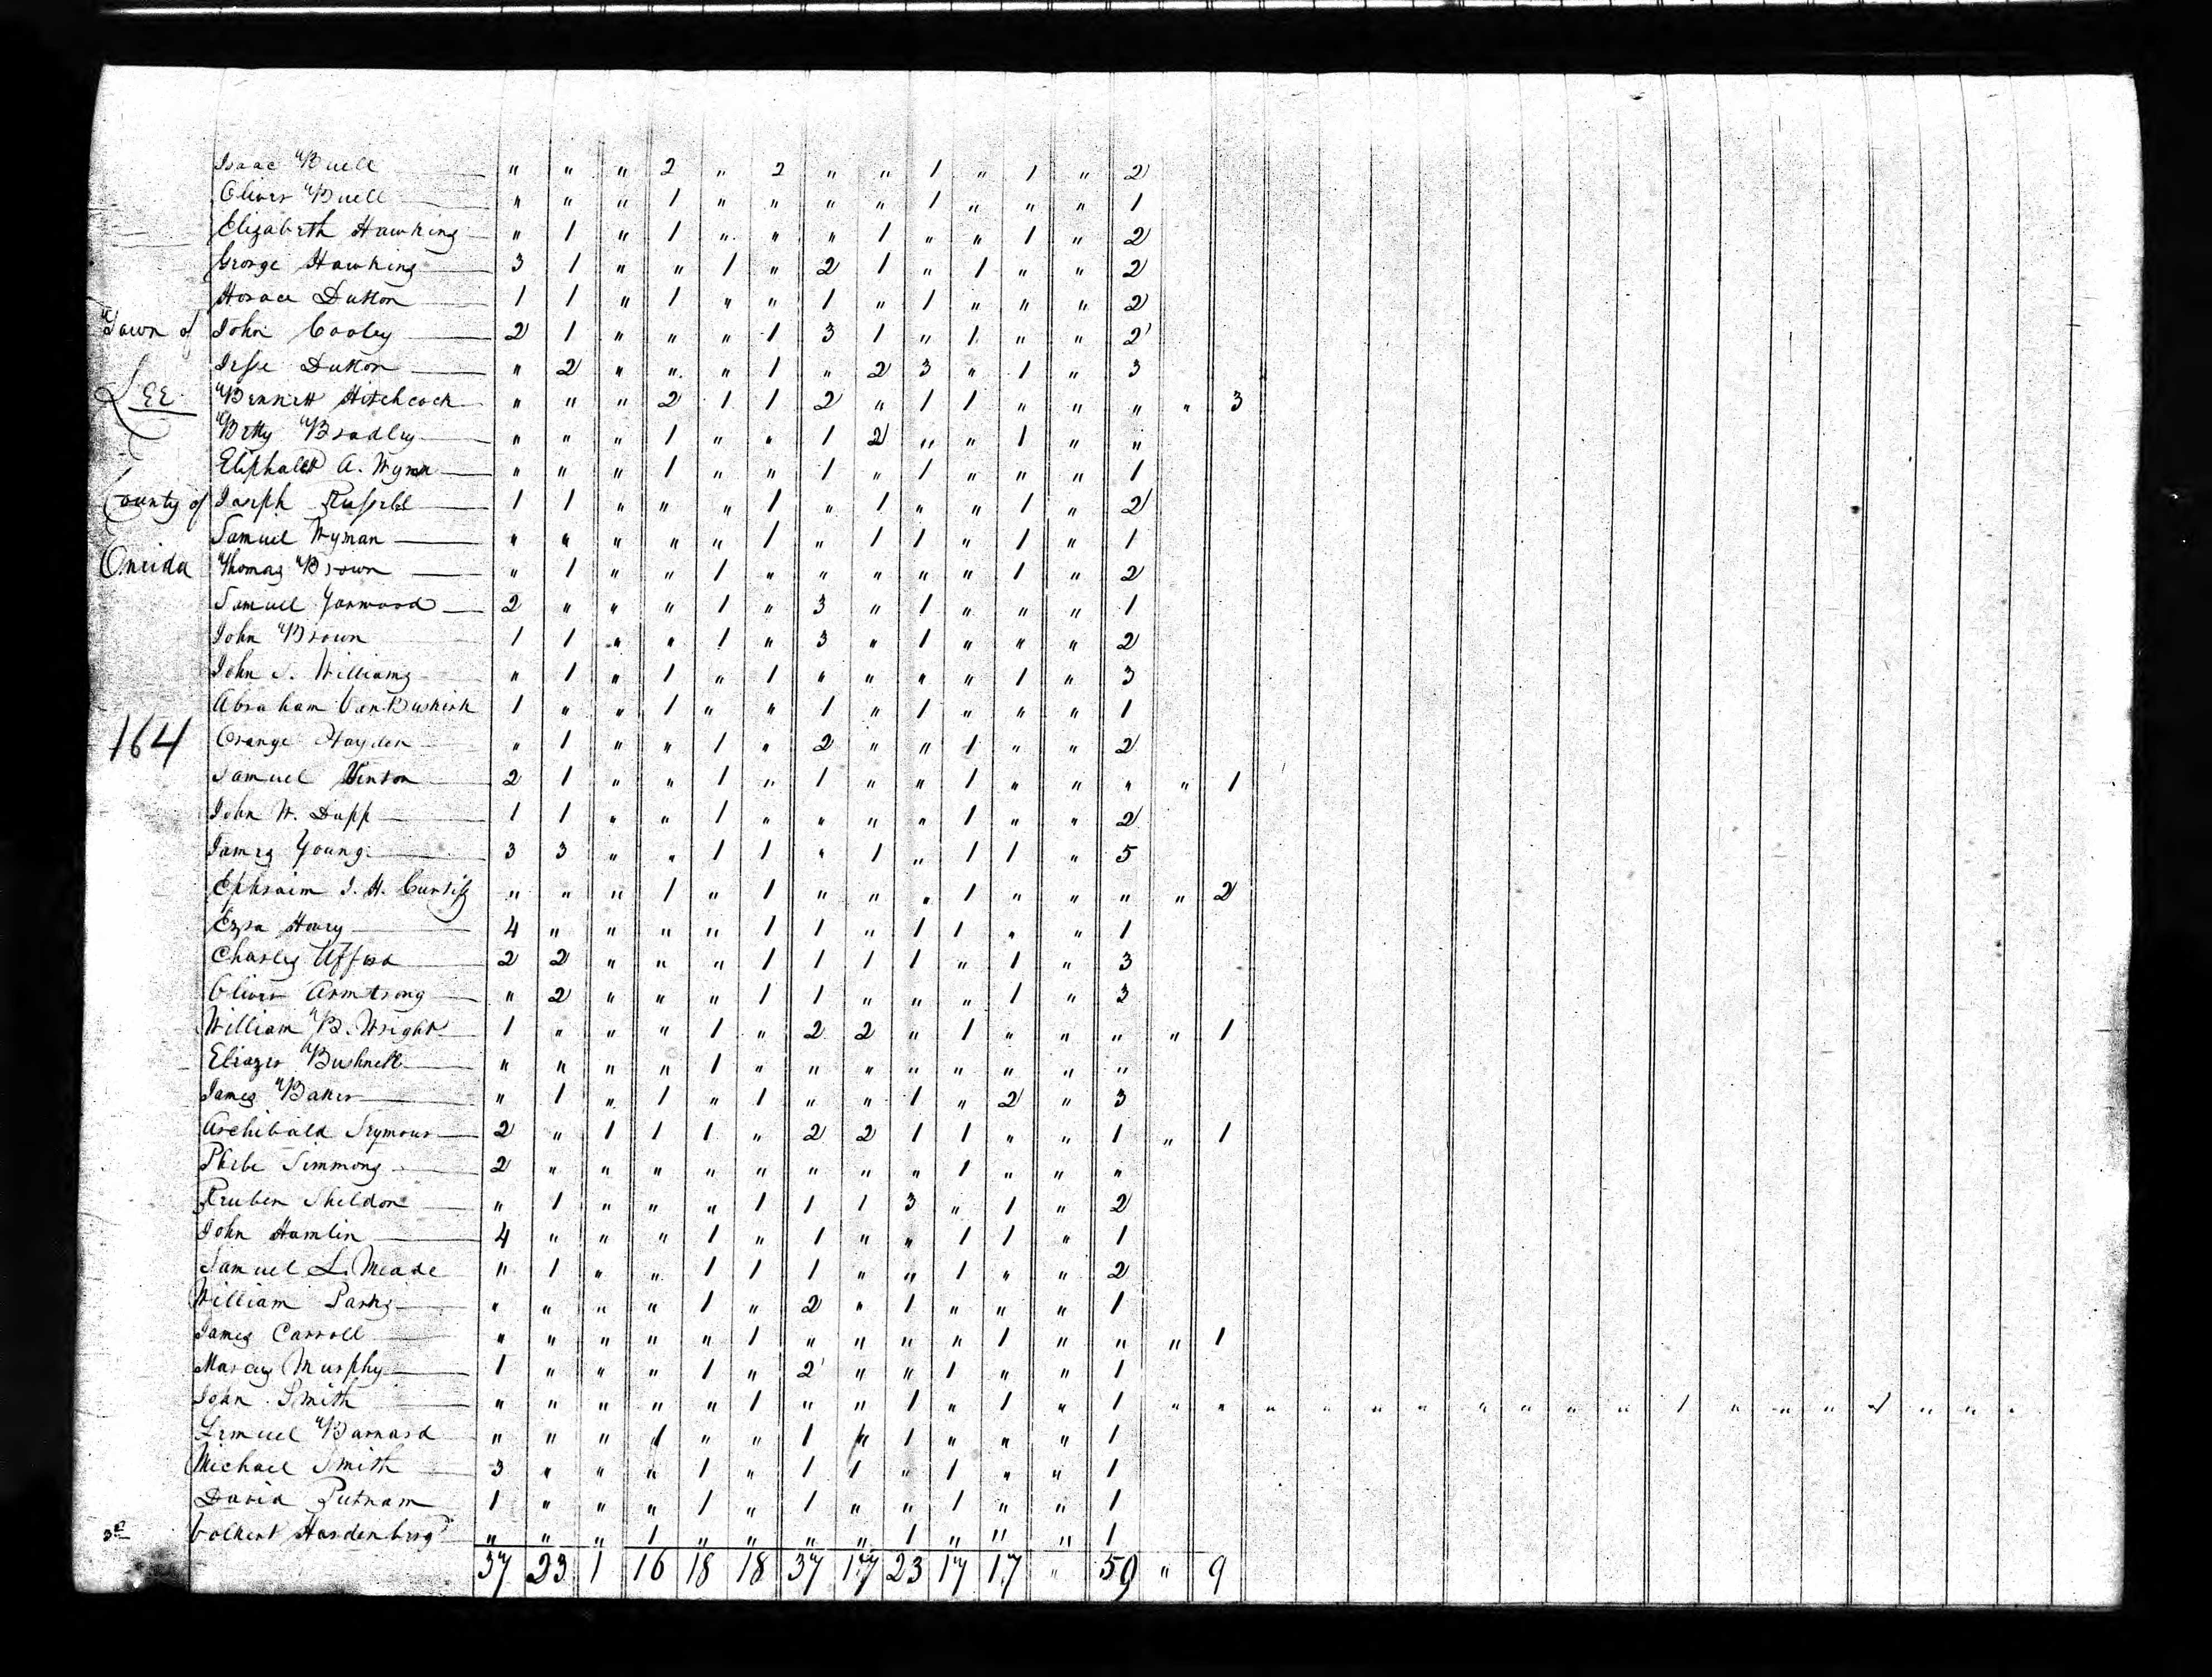 Isaac Buell " " " 2 " 2 " " 1 " 1 " 2
Oliver Buell " " " 1 " " " " 1 " " " 1
Elizabeth Hawking " 1 " 1 " " " 1 " " 1 " 2
George Hawking 3 1 " " 1 " 2 1 " 1 " " 2
Horace Dutton 1 1 " 1 " " 1 " 1 " " " 2
Town of John Cooley 2 1 " " " 1 3 1 " 1 " " 2
Jesse Dutton " 2 " " " 1 " 2 3 " 1 " 3
Lee Bennett Hitchcock " " " 2 1 1 2 " 1 1 " " " " 3
Betty Bradley " " " 1 " " 1 2 " " 1 " "
Eliphalet A. Wyman " " " 1 " " 1 " 1 " " " 1
County of Joseph Russell 1 1 " " " 1 " 1 " " 1 " 2
Samuel Wyman " " " " " 1 " 1 1 " 1 " 1
Oneida Thomas Brown " 1 " " 1 " " " " " 1 " 2
Samuel Yarwood 2 " " " 1 " 3 " 1 " " " 1
John Brown 1 1 " " 1 " 3 " 1 " " " 2
John S. Williams " 1 " 1 " 1 " " " " 1 " 3
Abraham VanBuskirk 1 " " 1 " " 1 " 1 " " " 1
164 Orange Hayden " 1 " " 1 " 2 " " 1 " " 2
Samuel Hinton 2 1 " " 1 " 1 " " 1 " " " " 1
John W. Dupp 1 1 " " 1 " " " " 1 " " 2
James Young 3 3 " " 1 1 " 1 " 1 1 " 5
Ephraim J. H. Curtiss " " " 1 " 1 " " " 1 " " " " 2
Ezra Henry 4 " " " " 1 1 " 1 1 " " 1
Charles Ufford 2 2 " " " 1 1 1 1 " 1 " 3
Oliver Armstrong " 2 " " " 1 1 " " " 1 " 3
William B. Wright 1 " " " 1 " 2 2 " 1 " " " " 1
Eliazer Bushnell " " " " 1 " " " " " " " "
James Baker " 1 " 1 " 1 " " 1 " 2 " 3
Archibald Seymour 2 " 1 1 1 " 2 2 1 1 " " 1 " 1
Phebe Simmons 2 " " " " " " " " 1 " " "
Reuben Sheldon " 1 " " " 1 1 1 3 " 1 " 2
John Hamlin 4 " " " 1 " 1 " " 1 1 " 1
Samuel L. Meade " 1 " " 1 1 1 " " 1 " " 2
William Parks " " " " 1 " 2 " 1 " " " 1
James Carroll " " " " " 1 " " " " 1 " " " 1
Marcus Murphy 1 " " " 1 " 2 " " 1 " " 1
John Smith " " " " " 1 " " 1 " 1 " 1 " " " " " " " " " " 1 " " " 1 " " "
Lemuel Barnard " " " 1 " " 1 " 1 " " " 1
Michael Smith 3 " " " 1 " 1 1 " 1 " " 1
David Putnam 1 " " " 1 " 1 " " 1 " " 1
Volkert Hardenberg " " " 1 " " " " 1 " " " 1
37 23 1 16 18 18 37 17 23 17 17 " 59 " 9